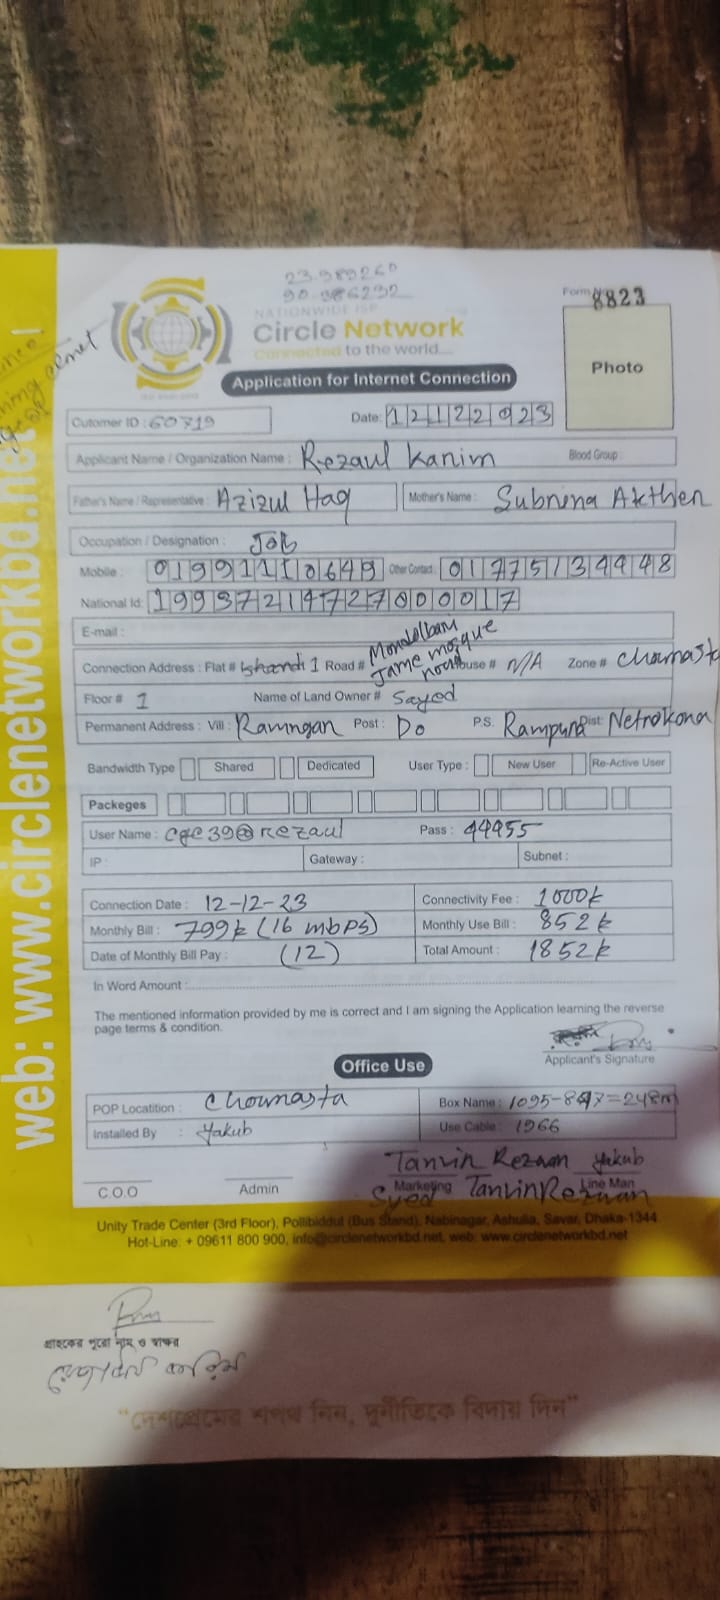 23.989260
90.986232
NATIONWIDE ISP
Circle Network
Connected to the world....
Form No 8823
Photo
Application for Internet Connection
Cutomer ID : 60719
Date: 12122023
Applicant Name / Organization Name : Rezaul Karim
Blood Group :
Father's Name / Representative : Azizul Haq
Mother's Name : Subrina Akther
Occupation / Designation : Job
Mobile : 01991110649 Other Contact : 01775134948
National Id: 19937214727000017
E-mail :
Connection Address : Flat # 1 Road # Jame mosque road House # N/A Zone # Chowrasta
Floor # 1 Name of Land Owner # Sayed
Permanent Address : Vill : Post : Do P.S. Rampura Dist: Netrokona
Bandwidth Type Shared Dedicated User Type : New User Re-Active User
Packeges
User Name : cgc39@rezaul Pass : 44955
IP : Gateway : Subnet :
Connection Date : 12-12-23 Connectivity Fee : 1000k
Monthly Bill : 799k (16 mbps) Monthly Use Bill : 852k
Date of Monthly Bill Pay : (12) Total Amount : 1852k
In Word Amount :
The mentioned information provided by me is correct and I am signing the Application learning the reverse
page terms & condition.
Applicant's Signature
Office Use
POP Locatition : Chowrasta Box Name : 1095-847=248m
Installed By : Yakub Use Cable : 1966
Tanvin Rezwan Yakub
C.O.O Admin Marketing Line Man
Syed Tanvin Rezwan
Unity Trade Center (3rd Floor), Pollibiddut (Bus Stand), Nabinagar, Ashulia, Savar, Dhaka-1344
Hot-Line: + 09611 800 900, info@circlenetworkbd.net, web: www.circlenetworkbd.net
web: www.circlenetworkbd.net
গ্রাহকের পুরো নাম ও স্বাক্ষর
রেজাউল করিম
"দেশপ্রেমের শপথ নিন, দুর্নীতিকে বিদায় দিন"